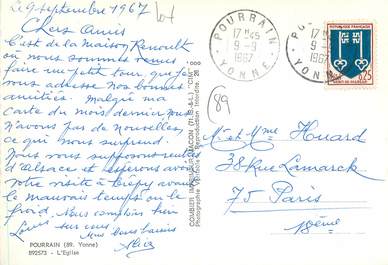 2 9 septembre 1967
Chers Amis
C'est de la maison Renoult
où nous sommes venus
faire un petit tour, que je
vous adresse nos bonnes
amitiés. Malgré ma
carte du mois dernier nous
n'avons pas de nouvelles,
ce qui nous surprend.
Nous vous supposons
d'Alsace et espérons avoir
votre visite à Crépy avant
le mauvais temps ou le
froid. Nous comptons bien
Louis sur vous
Mes deux baisers
POURRAIN (89. Yonne)
892573 - L'Eglise
COMBIER IMPRIMEUR MACON (71. S.-&-L.) "CIM"
Photographie Véritable - Reproduction Interdite
89
POURRAIN
17H45
9-9
1967
YONNE
POURRAIN
17H45
9-9
1967
YONNE
REPUBLIQUE FRANÇAISE
0,25
MONT-DE-MARSAN
M. et Mme Huard
38 Rue Lamarck
75 Paris
18ème